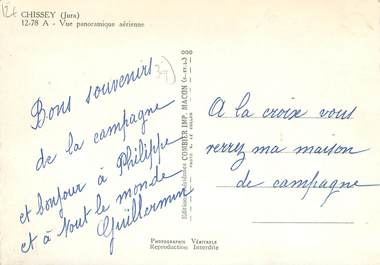 12t
CHISSEY (Jura)
12-78 A - Vue panoramique aérienne
Bons souvenirs
de la campagne
et bonjour à Philippe
et à tout le monde
Guillermin
000
COMBIER IMP. MACON
A la croix vous
verrez ma maison
de campagne
PHOTOGRAPHIE VÉRITABLE
Reproduction Interdite